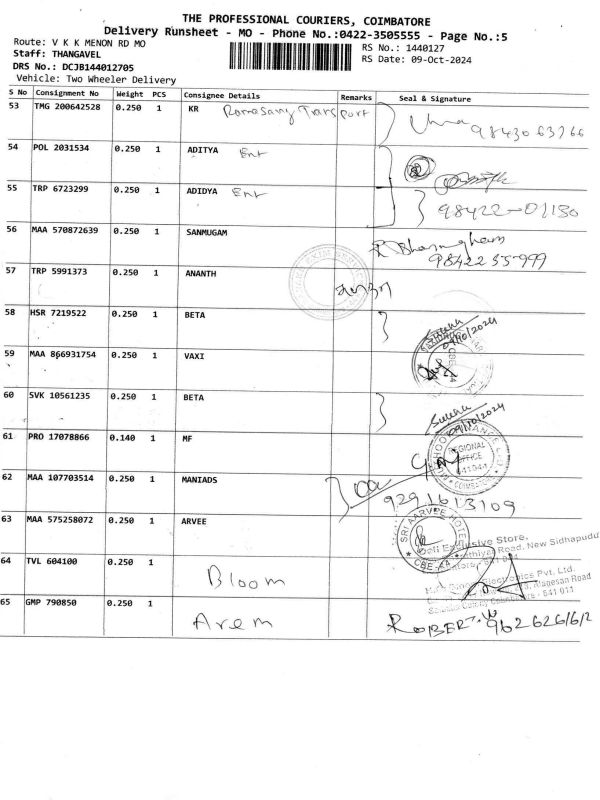 THE PROFESSIONAL COURIERS, COIMBATORE
Delivery Runsheet - MO - Phone No.:0422-3505555 - Page No.:5
Route: V K K MENON RD MO
RS No.: 1440127
Staff: THANGAVEL
RS Date: 09-Oct-2024
DRS No.: DCJB144012705
Vehicle: Two Wheeler Delivery
S No Consignment No Weight PCS Consignee Details Remarks Seal & Signature
53 TMG 200642528 0.250 1 KR Ramasamy Transport
54 POL 2031534 0.250 1 ADITYA Ent
55 TRP 6723299 0.250 1 ADIDYA Ent 98422-01130
56 MAA 570872639 0.250 1 SANMUGAM
98422 55999
57 TRP 5991373 0.250 1 ANANTH
58 HSR 7219522 0.250 1 BETA
59 MAA 866931754 0.250 1 VAXI
60 SVK 10561235 0.250 1 BETA
09/10/2024
61 PRO 17078866 0.140 1 MF
REGIONAL OFFICE
62 MAA 107703514 0.250 1 MANIADS 9291613109
63 MAA 575258072 0.250 1 ARVEE
SRI AARVEE HOTEL
Exclusive Store,
Road, New Sidhapudur
64 TVL 604100 0.250 1 Bloom
Electronics Pvt. Ltd.
Alagesan Road
641 011
65 GMP 790850 0.250 1 Arem ROBERT.W 9626261612